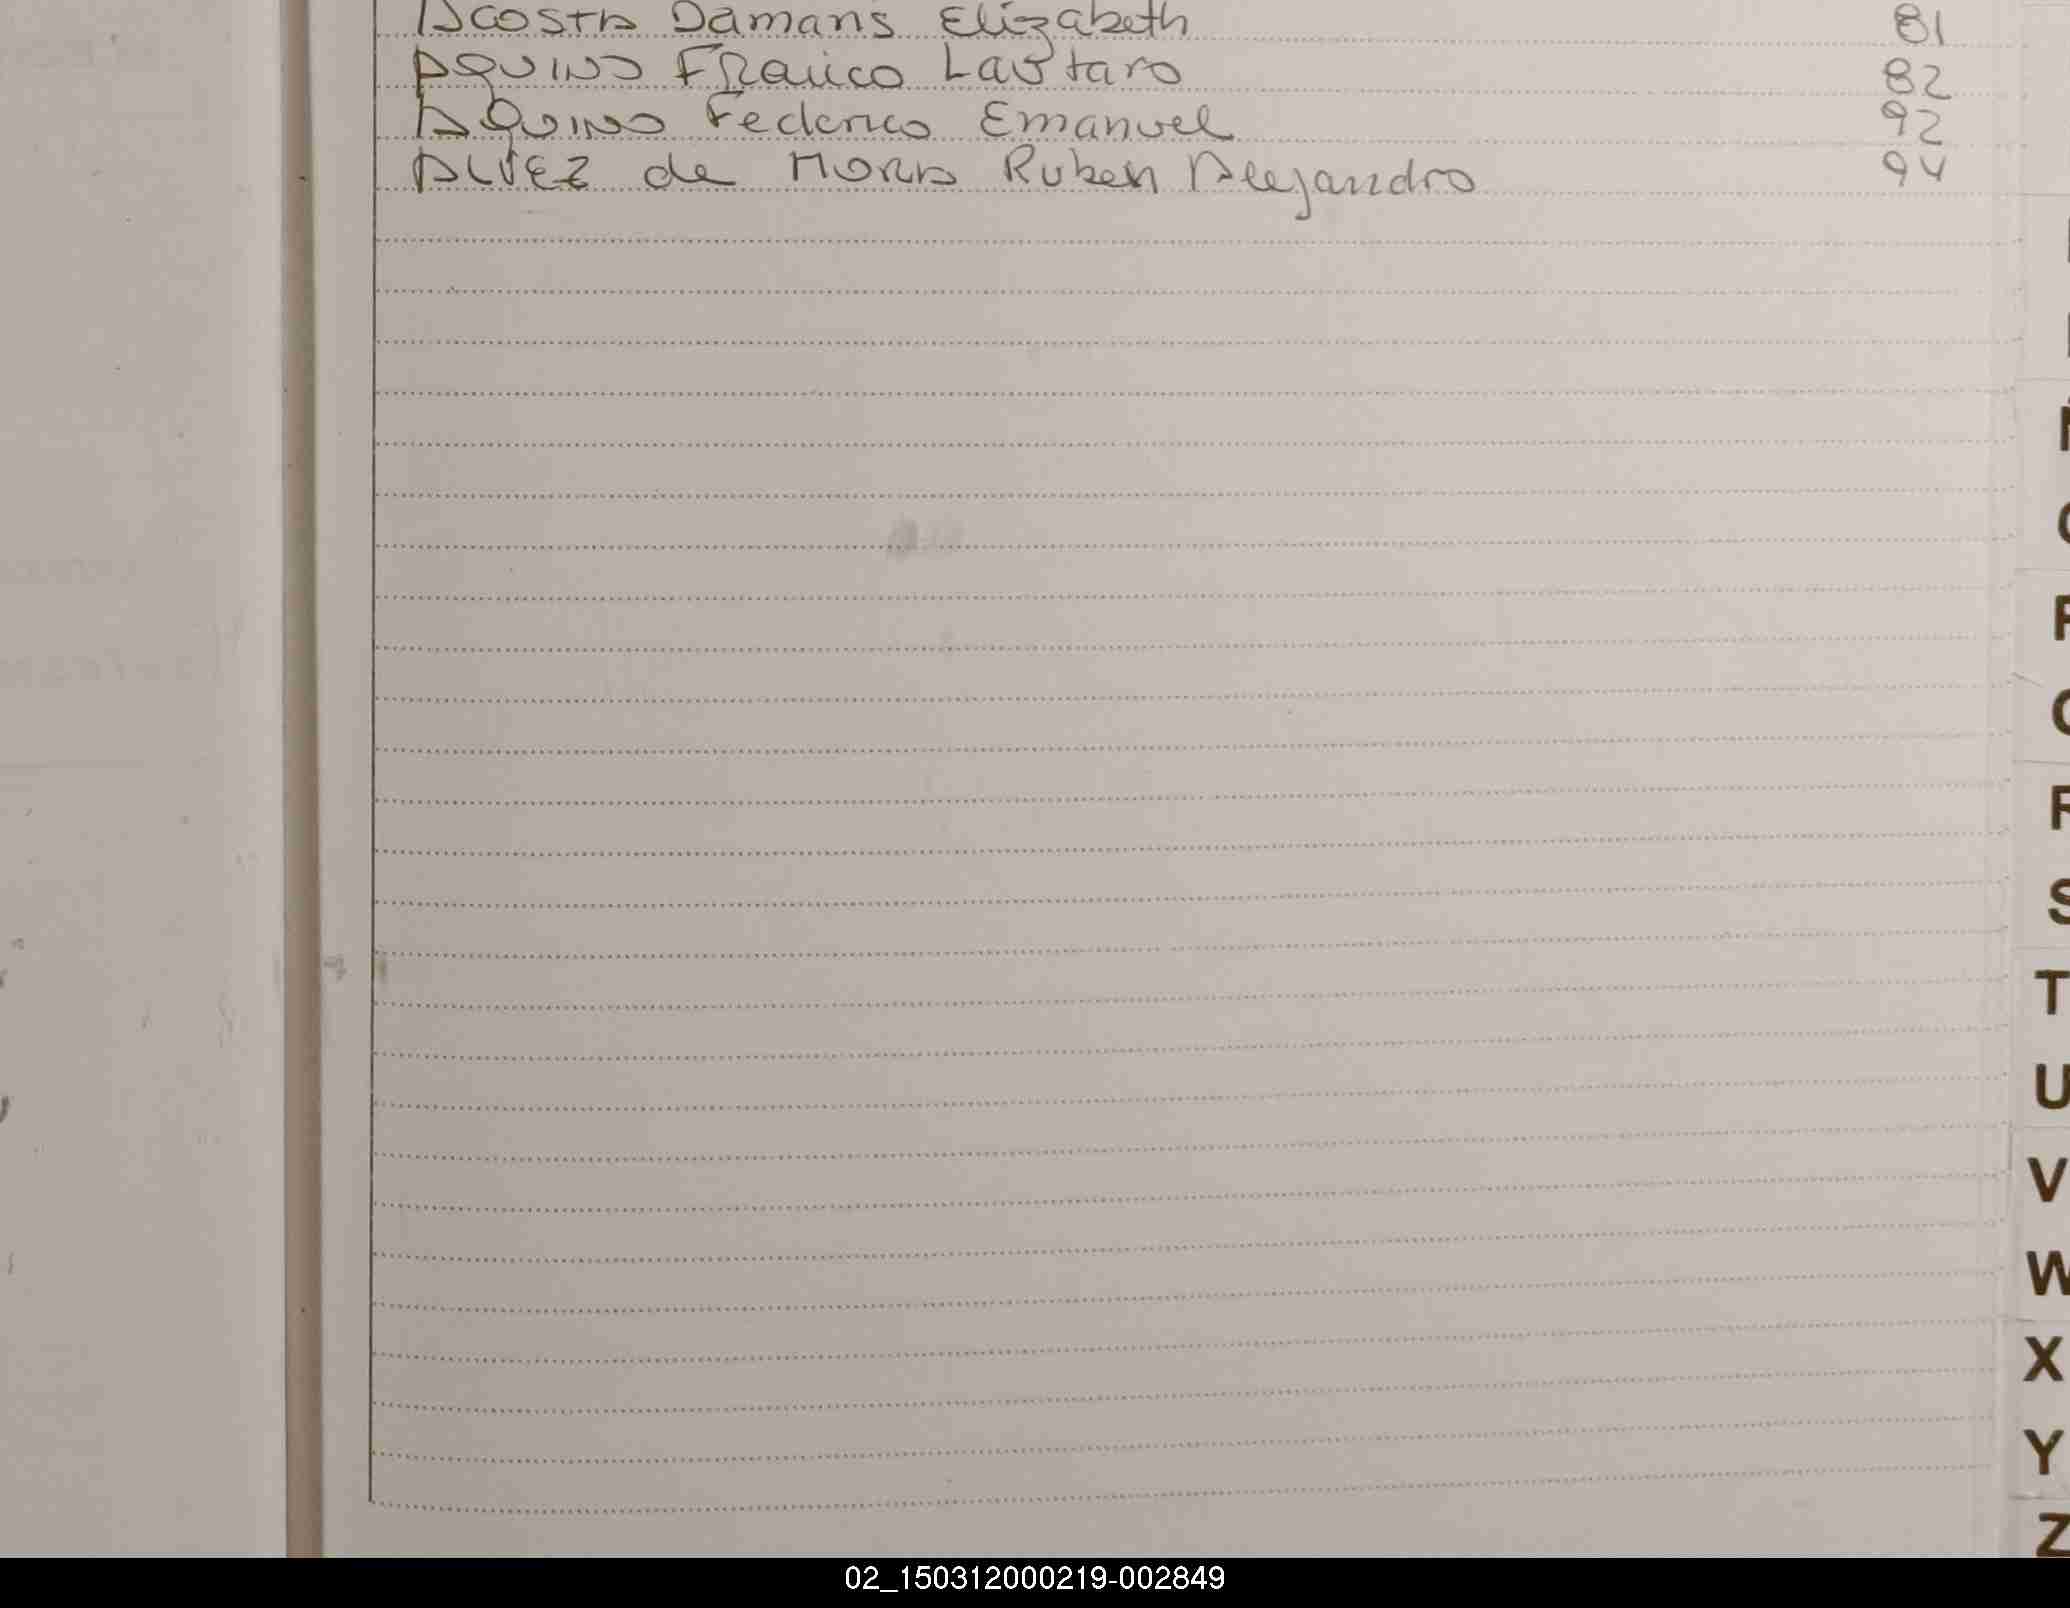 Acosta Damaris Elizabeth 81
Aquino Franco Lautaro 82
Aquino Federico Emanuel 92
Alvez de Mora Ruben Alejandro 94
R
S
T
U
V
W
X
Y
Z
02_150312000219-002849